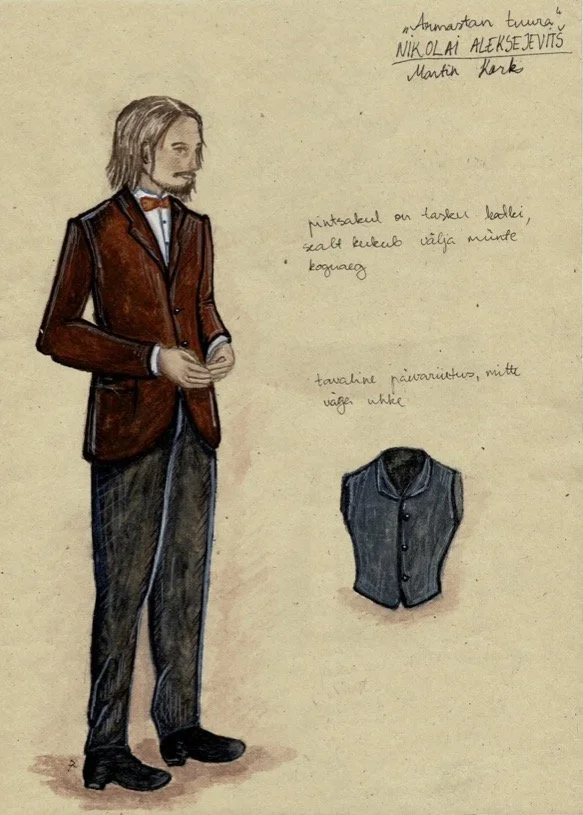 „Armastan tuura“
NIKOLAI ALEKSEJEVITŠ
Martin Kork
pintsakul on tasku katki,
sealt kukub välja münte
koguaeg
tavaline päevariietus, mitte
väga uhke